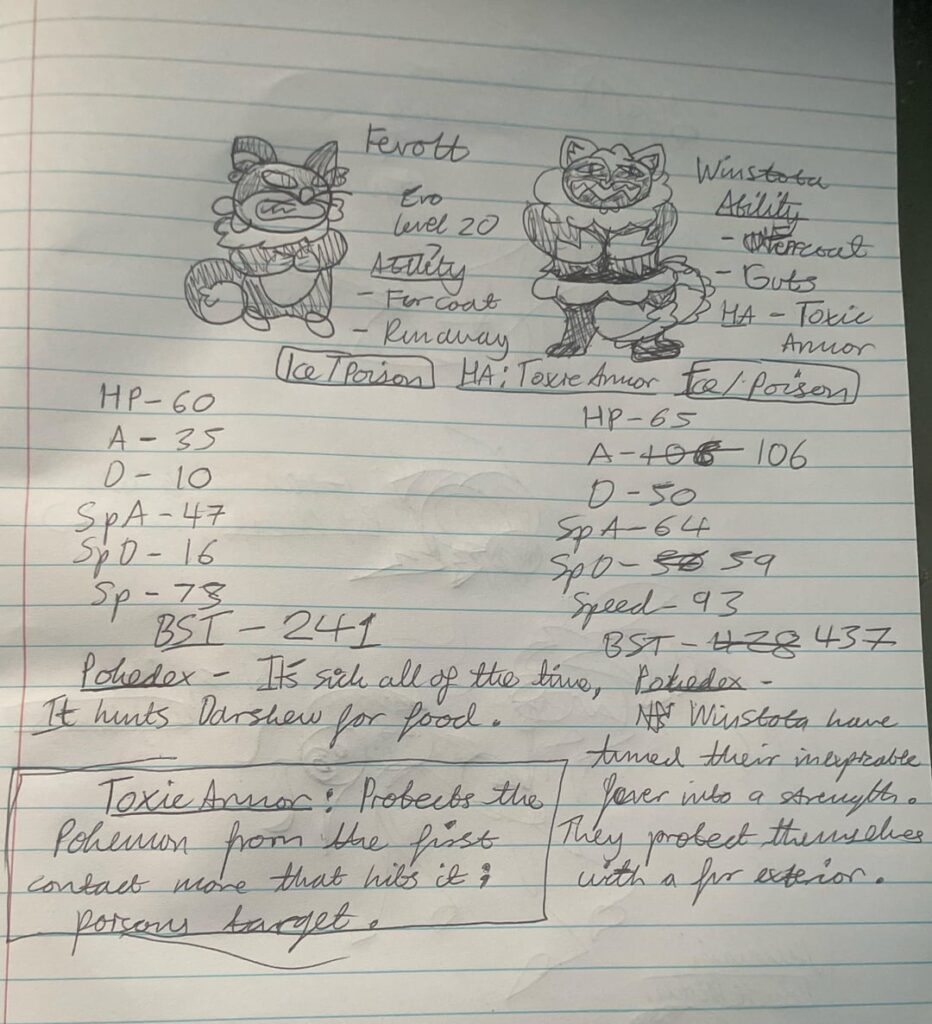 Fevott
Evo
Level 20
Ability
- Fur coat
- Run away
Ice / Poison
HA: Toxic Armor
HP - 60
A - 35
D - 10
SpA - 47
SpD - 16
Sp - 73
BST - 241
Pokedex - It's sick all of the time,
It hunts Darshew for food.
Toxic Armor: Protects the
Pokemon from the first
contact move that hits it;
poisons target.
Winstota
Ability
- Furcoat
- Guts
HA - Toxic
Armor
Ice / Poison
HP - 65
A - 106
D - 50
SpA - 64
SpD - 59
Speed - 93
BST - 428 437
Pokedex -
Winstota have
turned their inexpirable
fever into a strength.
They protect themselves
with a fur exterior.